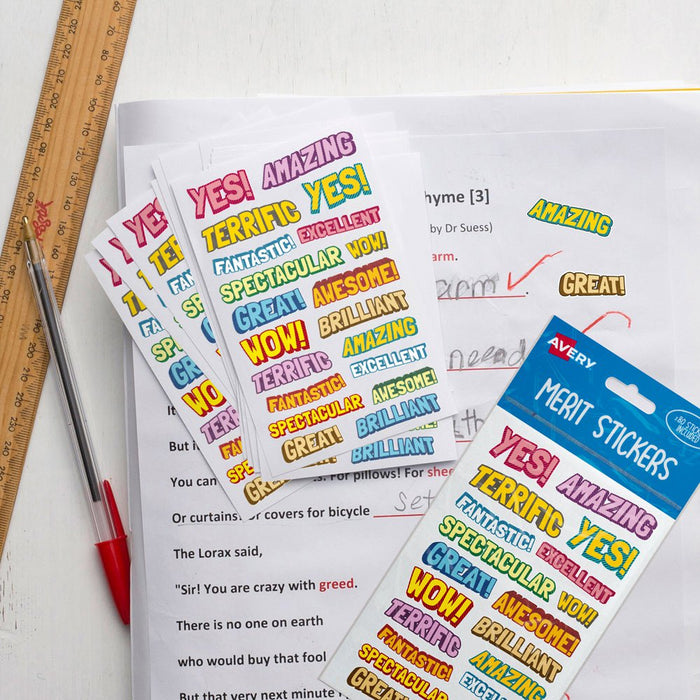 YES! AMAZING
TERRIFIC YES!
FANTASTIC! EXCELLENT
SPECTACULAR WOW!
GREAT! AWESOME!
WOW! BRILLIANT
TERRIFIC AMAZING
EXCELLENT
FANTASTIC! AWESOME!
SPECTACULAR BRILLIANT
GREAT!
BRILLIANT
hyme [3]
by Dr Suess)
arm.
arm
need
AMAZING
GREAT!
But i
You can
s. For pillows! For shee
Or curtains! Or covers for bicycle set
The Lorax said,
"Sir! You are crazy with greed.
There is no one on earth
who would buy that fool
But that very next minute
AVERY
MERIT STICKERS
YES! AMAZING
TERRIFIC YES!
FANTASTIC! EXCELLENT
SPECTACULAR WOW!
GREAT! AWESOME!
WOW! BRILLIANT
TERRIFIC AMAZING
FANTASTIC!
SPECTACULAR
GREAT!